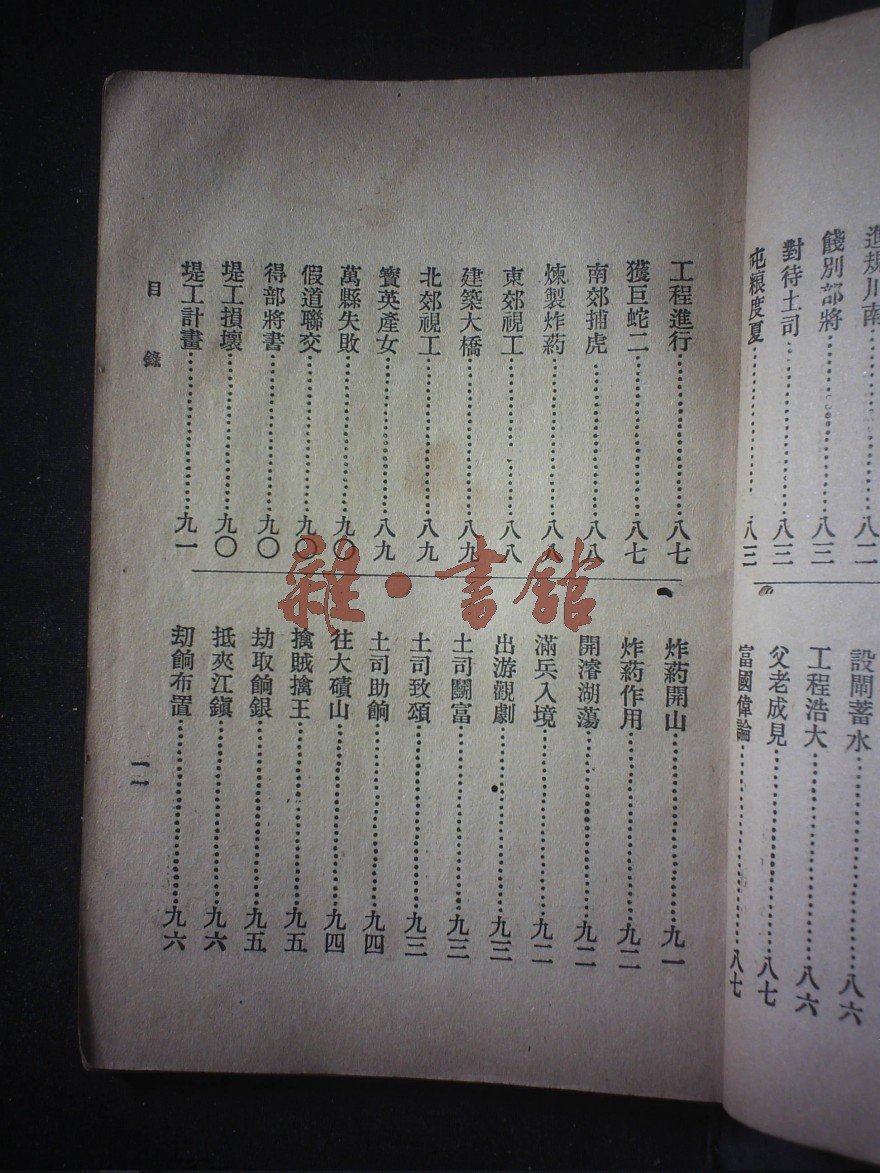 進規川南……八二
餞別部將……八三
對待土司……八三
屯糧度夏……八三
設閘蓄水……八六
工程浩大……八六
父老成見……八七
富國偉論……八七
工程進行……八七
獲巨蛇二……八七
南郊捕虎……八八
煉製炸葯……八八
東郊視工……八八
建築大橋……八九
北郊視工……八九
寶英產女……八九
萬縣失敗……九〇
假道聯交……九〇
得部將書……九〇
堤工損壞……九〇
堤工計畫……九一
炸葯開山……九一
炸葯作用……九二
開濬湖蕩……九二
滿兵入境……九二
出游觀劇……九三
土司鬭富……九三
土司致頌……九三
土司助餉……九四
往大磧山……九四
擒賊擒王……九五
劫取餉銀……九五
抵夾江鎭……九六
刧餉布置……九六
目錄
一一
雜·書館